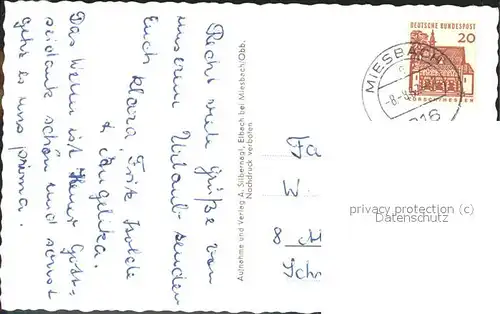 Recht viele Grüße von
unserem Urlaub senden
Euch Klara, Fritz, Isolde
+ Angelika.
Das Wetter ist Gott-
seidank schön und sonst
geht es uns prima.
Aufnahme und Verlag A. Silbernagl, Elbach bei Miesbach/Obb.
Nachdruck verboten
DEUTSCHE BUNDESPOST
20
LORSCH/HESSEN
MIESBACH
Fa
W
8
privacy protection (c)
Datenschutz